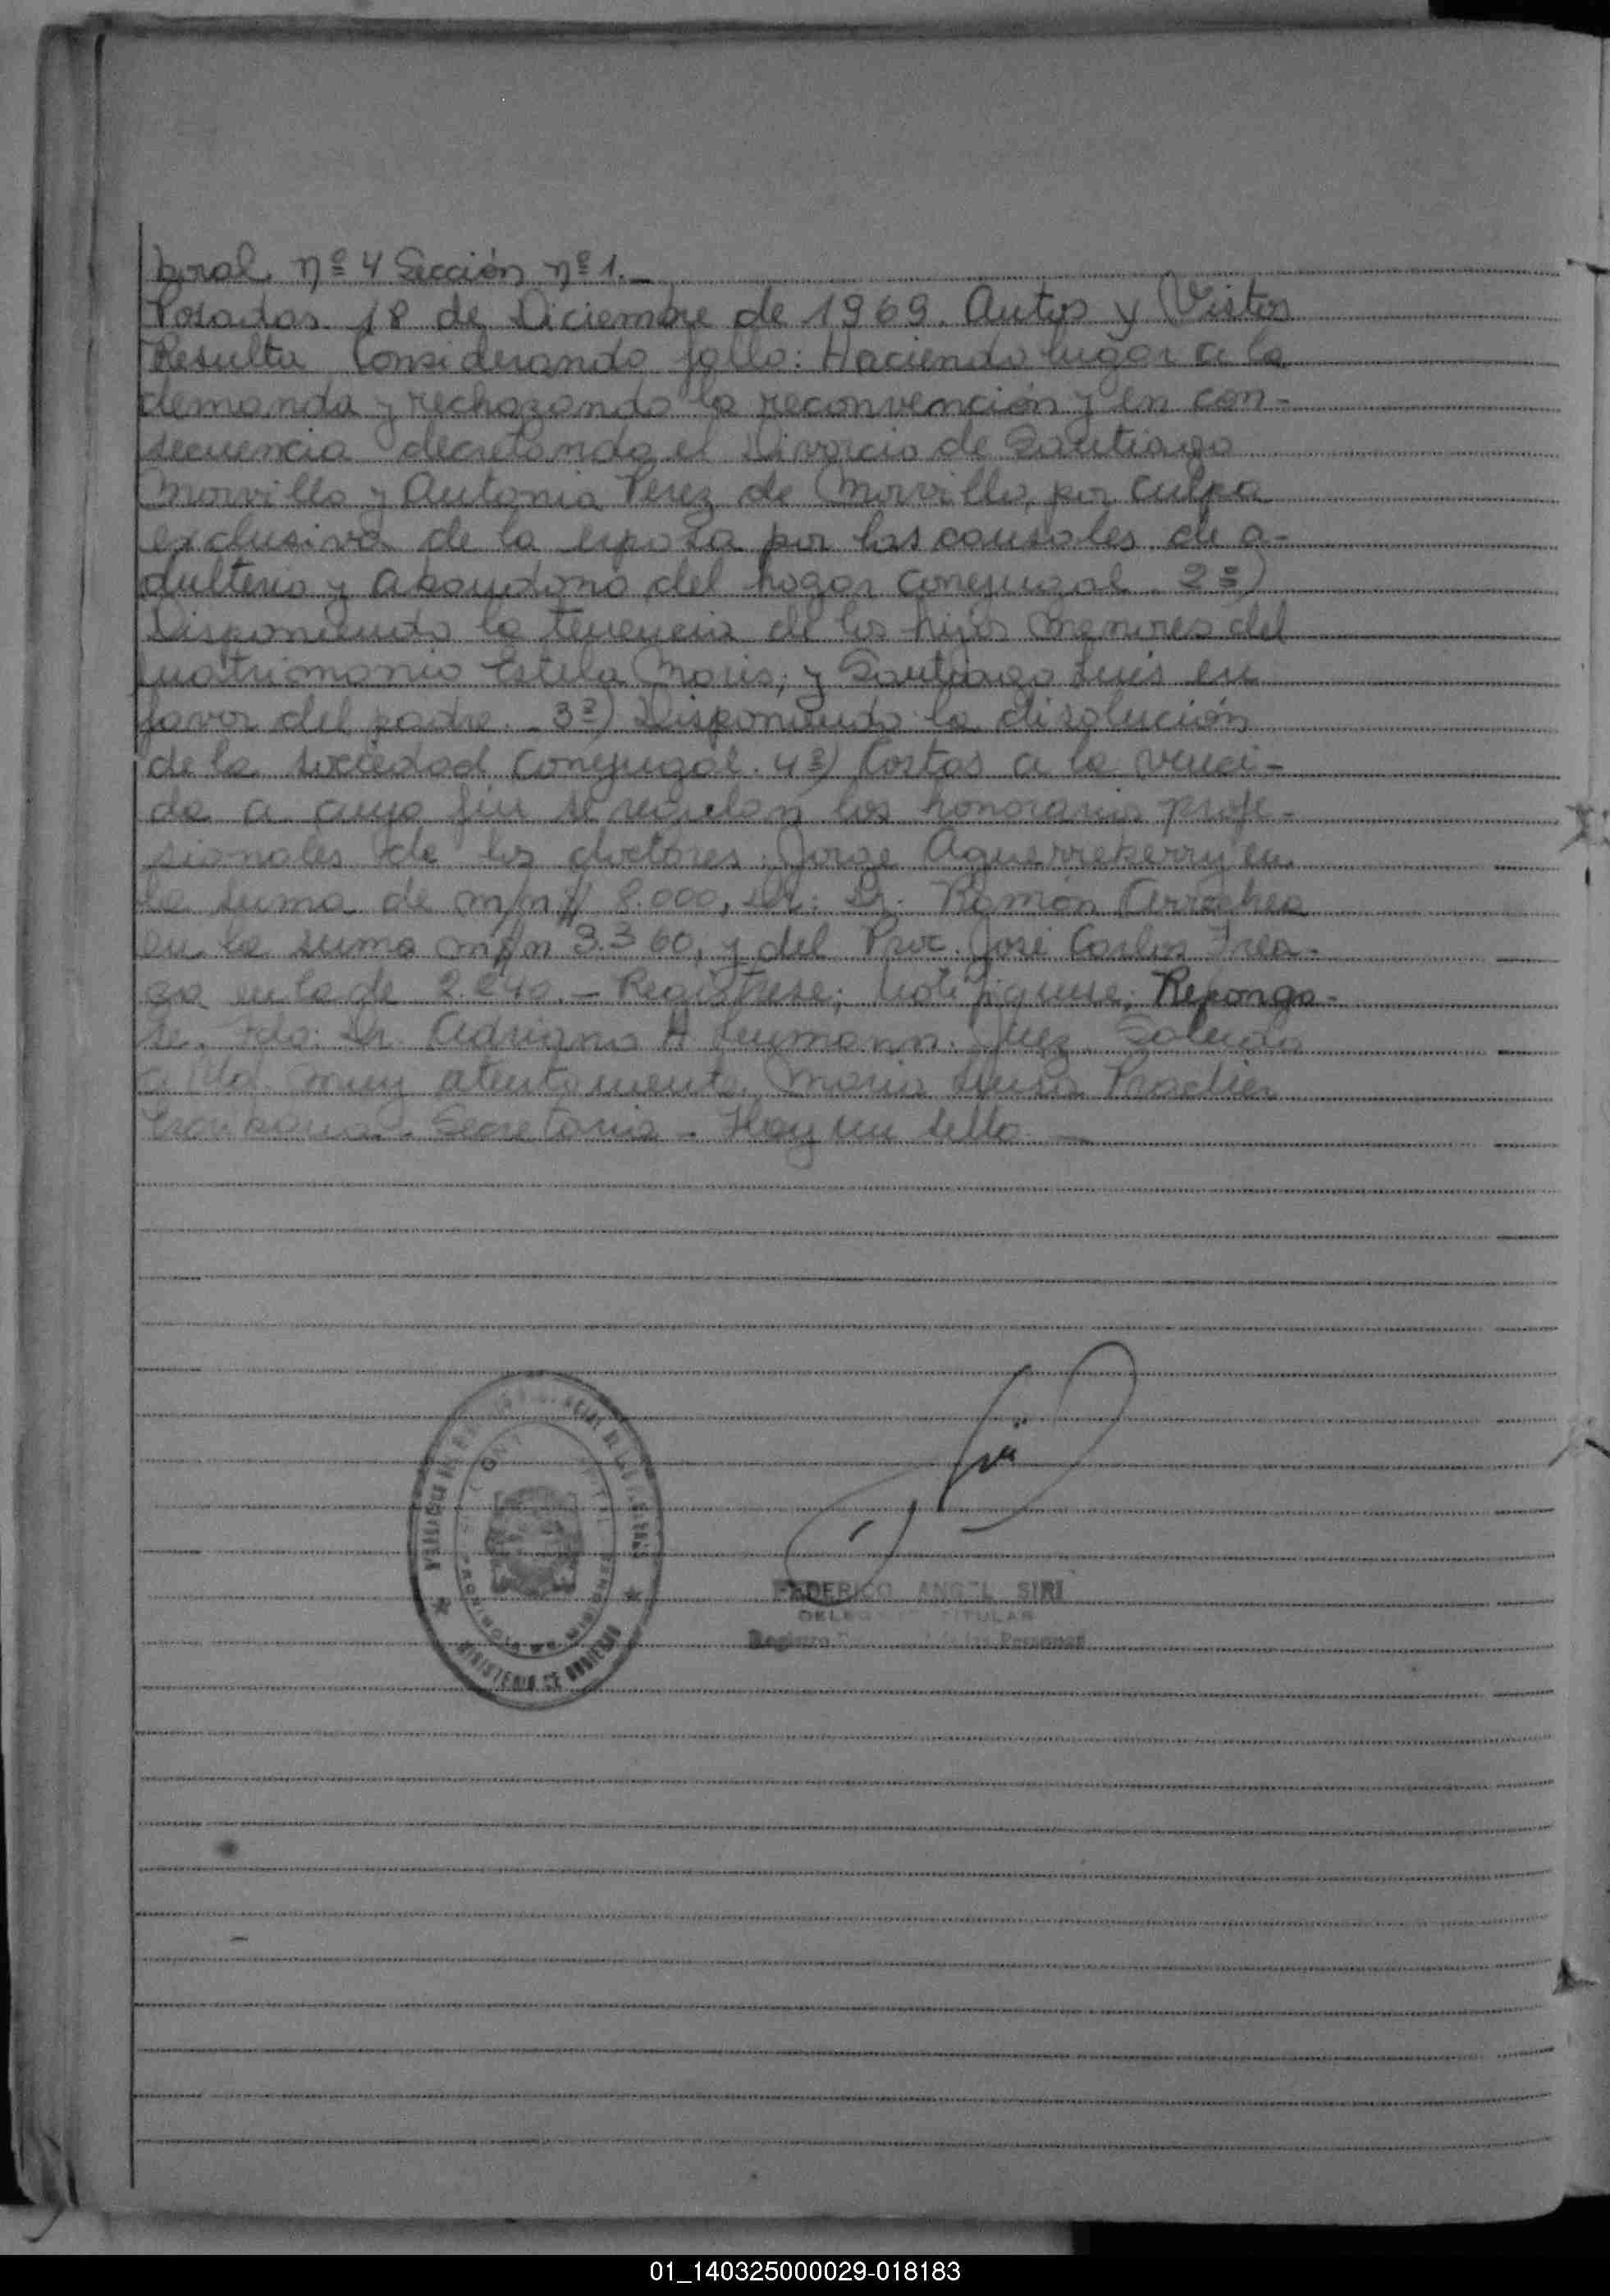 boral nº 4 Sección nº 1.—
Posadas 18 de Diciembre de 1969. Autos y Vistos
Resulta Considerando fallo: Haciendo lugar a la
demanda y rechazando la reconvención y en con-
secuencia decretando el Divorcio de Santiago
Morvillo y Antonia Perez de Morvillo, por culpa
exclusiva de la esposa por las causales de a-
dulterio y abandono del hogar conyugal. 2º)
Disponiendo la tenencia de los hijos menores del
matrimonio Estela Maris, y Santiago Luis en
favor del padre. 3º) Disponiendo la disolución
de la sociedad conyugal. 4º) Costas a la venci-
da a cuyo fin se regulan los honorarios profe-
sionales de los doctores: Jorge Aguerreberry en
la suma de m/n $ 8.000, Dr. Ramón Arrechea
en la suma m$n 3.360, y del Proc. José Carlos Frea-
ga en la de 2.240.— Regístrese; Notifiquese; Reponga-
se. Fdo: Dr. Adriano H Leumann. Juez. Saluda
a Ud. muy atentamente. Maria Luisa Pradier
Secretaria - Hay un sello.—
MINISTERIO DE GOBIERNO
FEDERICO ANGEL SIRI
DELEGADO TITULAR
Registro Personas
01_140325000029-018183